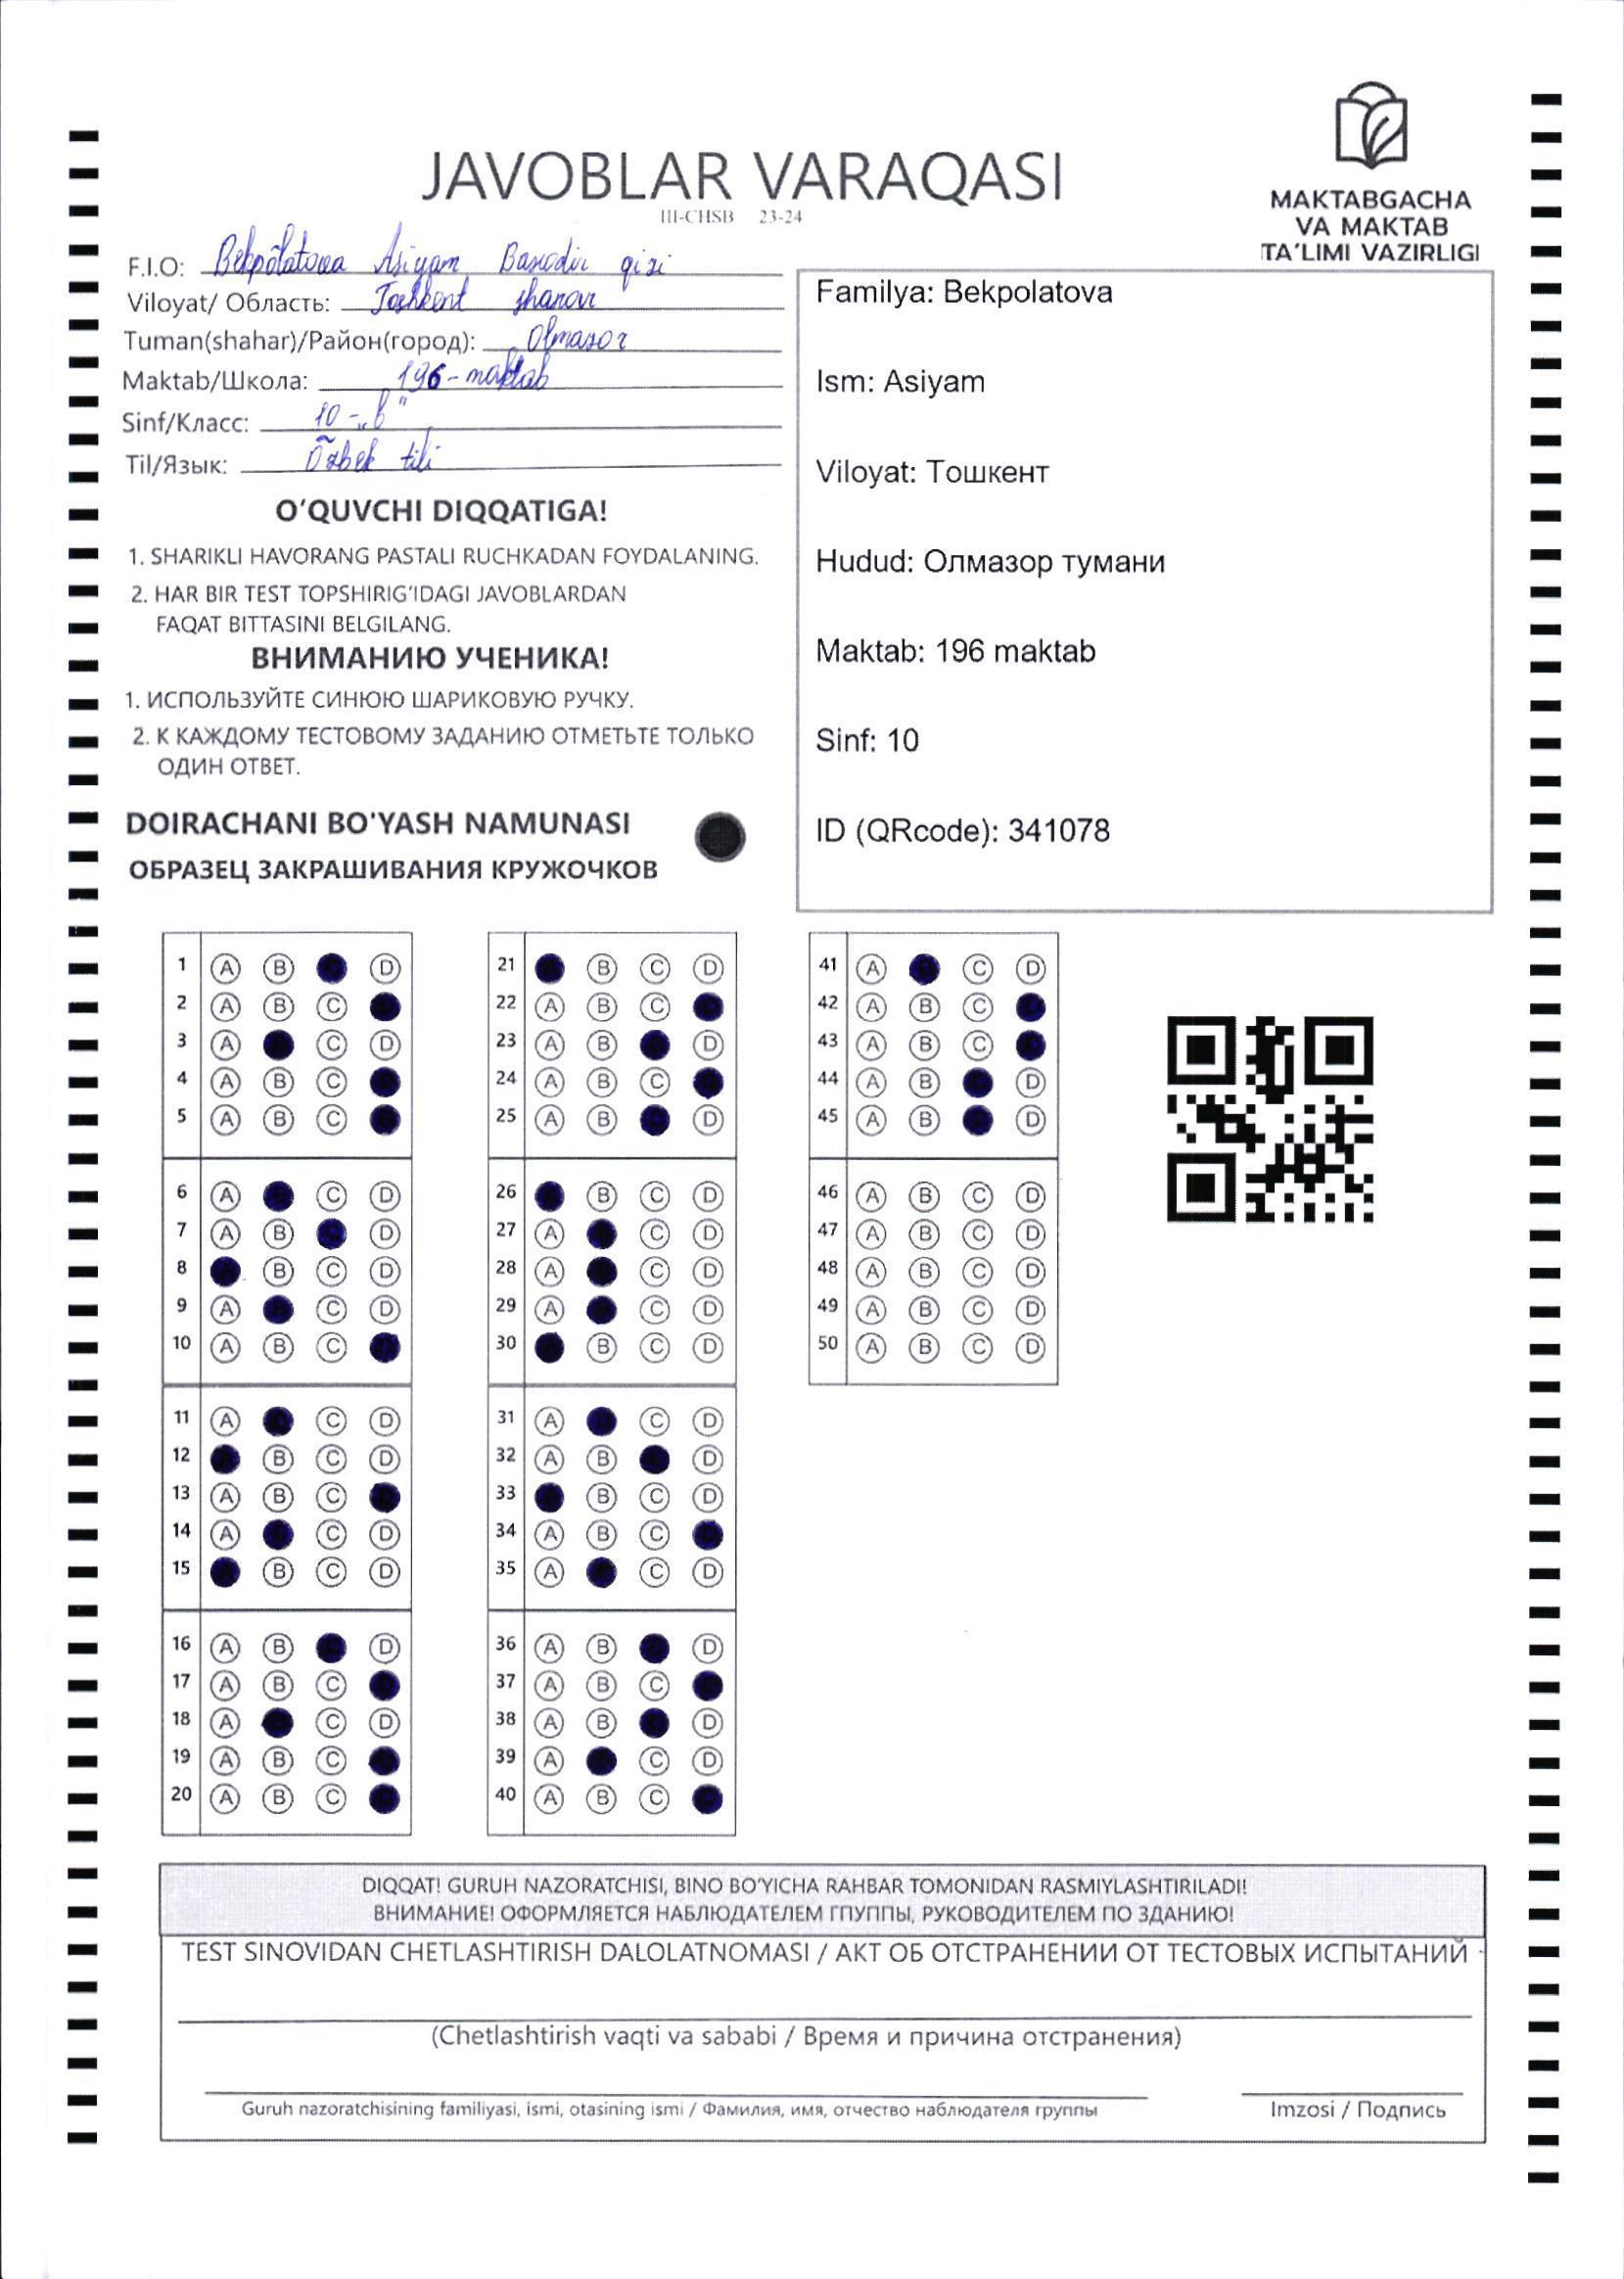 JAVOBLAR VARAQASI
III-CHSB 23-24
MAKTABGACHA
VA MAKTAB
TA'LIMI VAZIRLIGI
F.I.O: Bekpõlatova Asiyam Baxodir qizi
Viloyat/ Область: Toshkent shahar
Tuman(shahar)/Район(город): Olmazor
Maktab/Школа: 196-maktab
Sinf/Класс: 10-„b"
Til/Язык: Õzbek tili
O'QUVCHI DIQQATIGA!
1. SHARIKLI HAVORANG PASTALI RUCHKADAN FOYDALANING.
2. HAR BIR TEST TOPSHIRIG'IDAGI JAVOBLARDAN
FAQAT BITTASINI BELGILANG.
ВНИМАНИЮ УЧЕНИКА!
1. ИСПОЛЬЗУЙТЕ СИНЮЮ ШАРИКОВУЮ РУЧКУ.
2. К КАЖДОМУ ТЕСТОВОМУ ЗАДАНИЮ ОТМЕТЬТЕ ТОЛЬКО
ОДИН ОТВЕТ.
DOIRACHANI BO'YASH NAMUNASI
ОБРАЗЕЦ ЗАКРАШИВАНИЯ КРУЖОЧКОВ
Familya: Bekpolatova
Ism: Asiyam
Viloyat: Тошкент
Hudud: Олмазор тумани
Maktab: 196 maktab
Sinf: 10
ID (QRcode): 341078
1 A B D
2 A B C
3 A C D
4 A B C
5 A B C
6 A C D
7 A B D
8 B C D
9 A C D
10 A B C
11 A C D
12 B C D
13 A B C
14 A C D
15 B C D
16 A B D
17 A B C
18 A C D
19 A B C
20 A B C
21 B C D
22 A B C
23 A B D
24 A B C
25 A B D
26 B C D
27 A C D
28 A C D
29 A C D
30 B C D
31 A C D
32 A B D
33 B C D
34 A B C
35 A C D
36 A B D
37 A B C
38 A B D
39 A C D
40 A B C
41 A C D
42 A B C
43 A B C
44 A B D
45 A B D
46 A B C D
47 A B C D
48 A B C D
49 A B C D
50 A B C D
DIQQAT! GURUH NAZORATCHISI, BINO BO'YICHA RAHBAR TOMONIDAN RASMIYLASHTIRILADI!
ВНИМАНИЕ! ОФОРМЛЯЕТСЯ НАБЛЮДАТЕЛЕМ ГПУППЫ, РУКОВОДИТЕЛЕМ ПО ЗДАНИЮ!
TEST SINOVIDAN CHETLASHTIRISH DALOLATNOMASI / АКТ ОБ ОТСТРАНЕНИИ ОТ ТЕСТОВЫХ ИСПЫТАНИЙ
(Chetlashtirish vaqti va sababi / Время и причина отстранения)
Guruh nazoratchisining familiyasi, ismi, otasining ismi / Фамилия, имя, отчество наблюдателя группы
Imzosi / Подпись